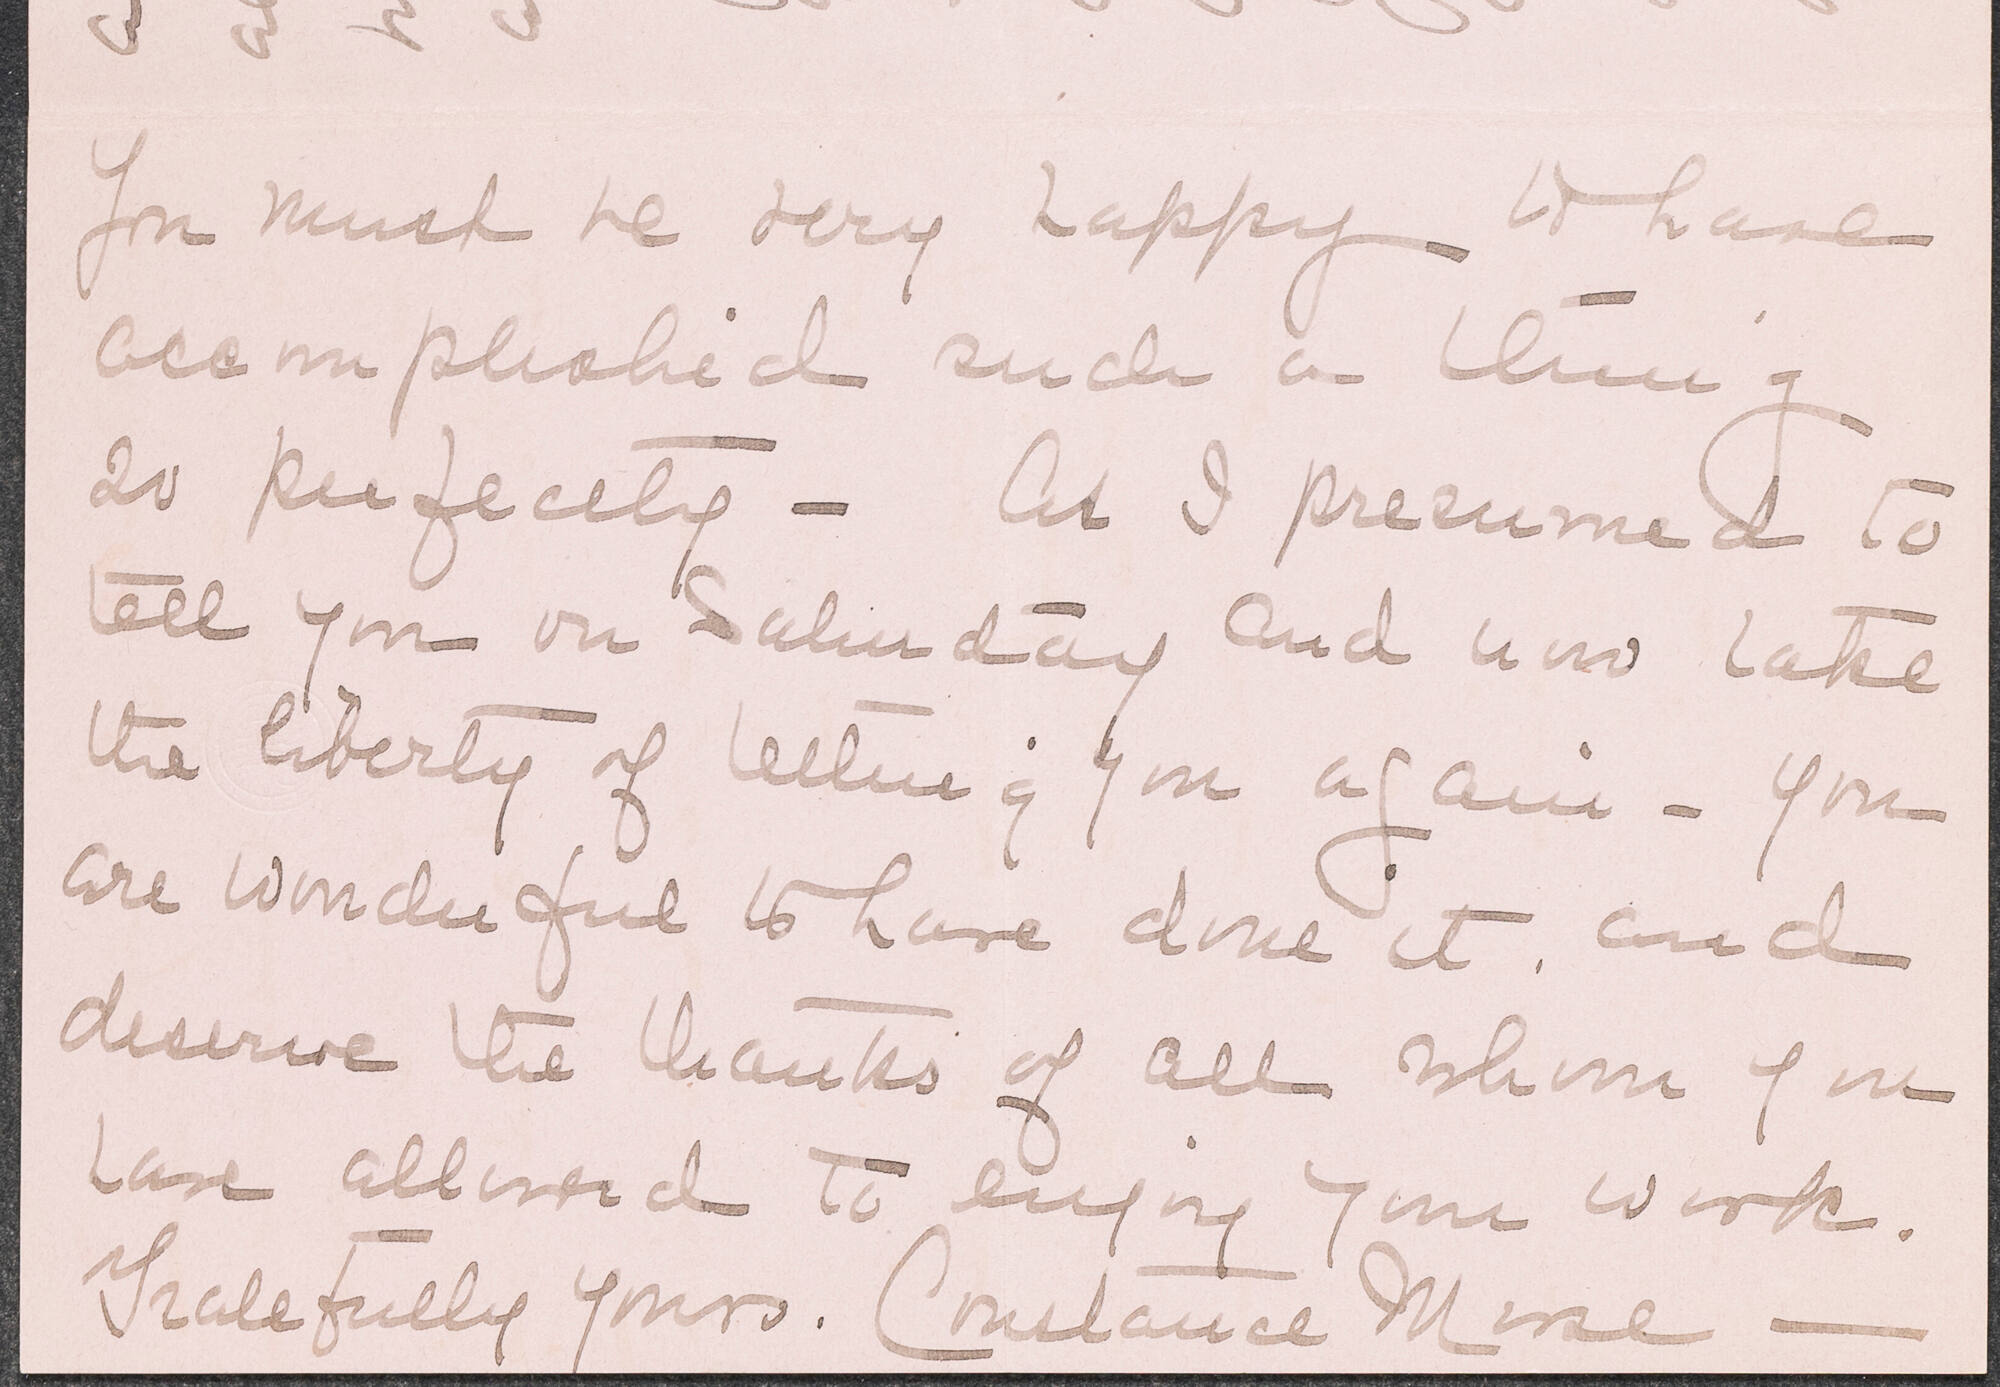 You must be very happy to have
accomplished such a thing
so perfectly – As I presumed to
tell you on Saturday and now take
the liberty of telling you again – you
are wonderful to have done it, and
deserve the thanks of all whom you
have allowed to enjoy your work.
Gratefully yours. Constance Morse —